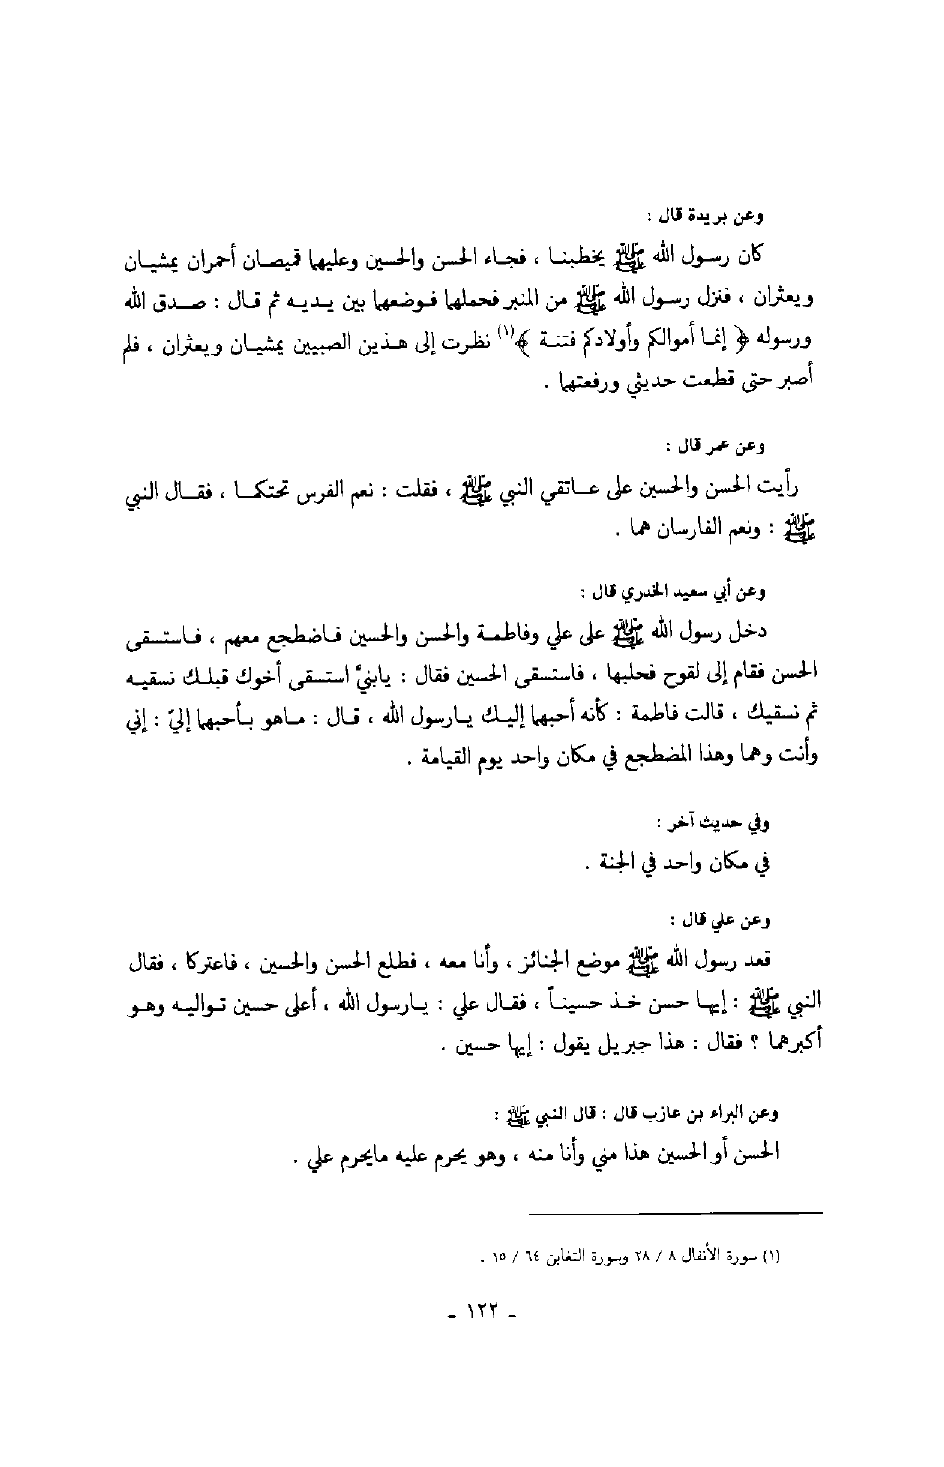 وعن بريدة قال :
كان رسول الله ﷺ يخطبنا ، فجاء الحسن والحسين وعليهما قميصان أحمران يمشيان
ويعثران ، فنزل رسول الله ﷺ من المنبر فحملهما فوضعهما بين يديه ثم قال : صدق الله
ورسوله ﴿ إنما أموالكم وأولادكم فتنة ﴾(١) نظرت إلى هذين الصبيين يمشيان ويعثران ، فلم
أصبر حتى قطعت حديثي ورفعتهما .
وعن عمر قال :
رأيت الحسن والحسين على عاتقي النبي ﷺ ، فقلت : نعم الفرس تحتكما ، فقال النبي
ﷺ : ونعم الفارسان هما .
وعن أبي سعيد الخدري قال :
دخل رسول الله ﷺ على علي وفاطمة والحسن والحسين فاضطجع معهم ، فاستسقى
الحسن فقام إلى لقوح فحلبها ، فاستسقى الحسين فقال : يابنيّ استسقى أخوك قبلك نسقيه
ثم نسقيك ، قالت فاطمة : كأنه أحبهما إليك يارسول الله ، قال : ماهو بأحبهما إليّ : إني
وأنت وهما وهذا المضطجع في مكان واحد يوم القيامة .
وفي حديث آخر :
في مكان واحد في الجنة .
وعن علي قال :
قعد رسول الله ﷺ موضع الجنائز ، وأنا معه ، فطلع الحسن والحسين ، فاعتركا ، فقال
النبي ﷺ : إيها حسن خذ حسيناً ، فقال علي : يارسول الله ، أعلى حسين تواليه وهو
أكبرهما ؟ فقال : هذا جبريل يقول : إيها حسين .
وعن البراء بن عازب قال : قال النبي ﷺ :
الحسن أو الحسين هذا مني وأنا منه ، وهو يحرم عليه مايحرم علي .
(١) سورة الأنفال ٨ / ٢٨ وسورة التغابن ٦٤ / ١٥ .
- ١٢٢ -